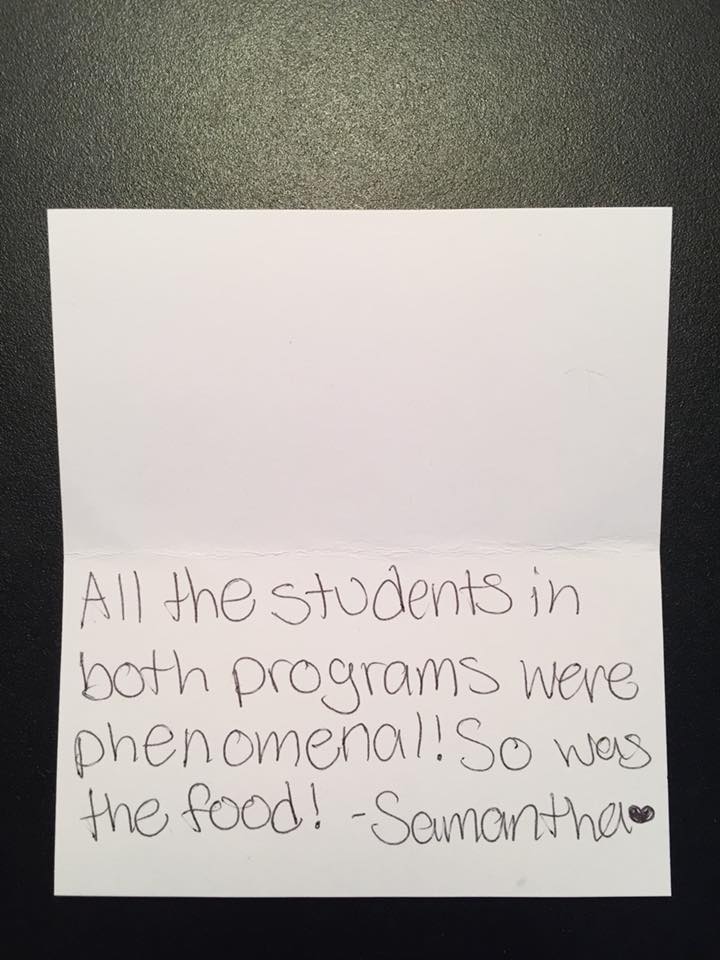 All the students in
both programs were
phenomenal! So was
the food! -Samantha♥